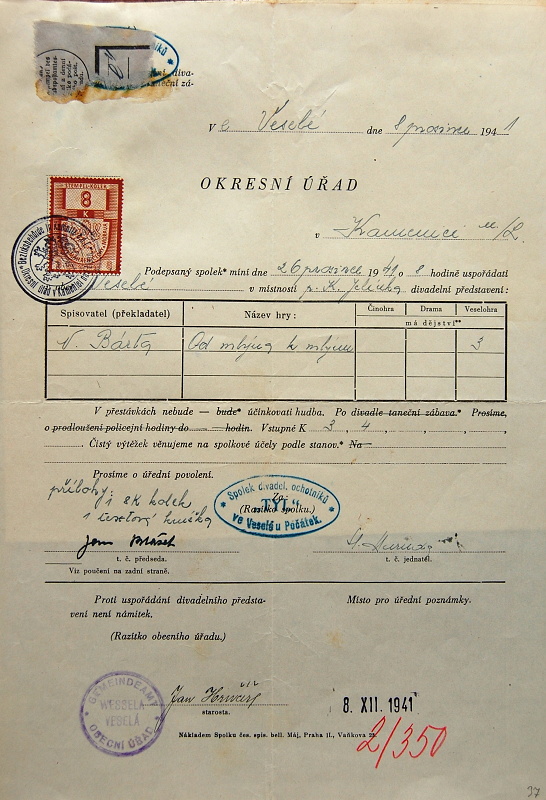 V e Veselé dne 8 prosince 1941
OKRESNÍ ÚŘAD
v Kamenici n/L.
STEMPEL-KOLEK
8
K
Podepsaný spolek* míní dne 26 prosince 1941 o 8 hodině uspořádati
Veselé v místnosti p. K. Jelínka divadelní představení:
Spisovatel (překladatel) Název hry: Činohra Drama Veselohra
má dějství**
V. Bárta Od mlýna k mlýnu 3
V přestávkách nebude — bude* účinkovati hudba. Po divadle taneční zábava.* Prosíme,
o prodloužení policejní hodiny do hodin. Vstupné K 3, 4,
Čistý výtěžek věnujeme na spolkové účely podle stanov.* Na
Prosíme o úřední povolení.
přílohy: 1 8K kolek
1
Spolek divadel. ochotníků
Za:
"TYL"
(Razítko spolku.)
ve Veselé u Počátek.
t. č. předseda. t. č. jednatel.
Viz poučení na zadní straně.
Proti uspořádání divadelního představení
není námitek.
Místo pro úřední poznámky.
(Razítko obecního úřadu.)
GEMEINDEAMT
WESSELA
VESELÁ
OBECNÍ ÚŘAD
Jan
starosta.
8. XII. 1941
Nákladem Spolku čes. spis. bell. Máj, Praha II., Vaňkova
2/350
37